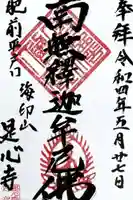 奉拝 令和四年五月廿七日
南無釋迦牟尼佛
肥前平戸口
海印山
是心寺